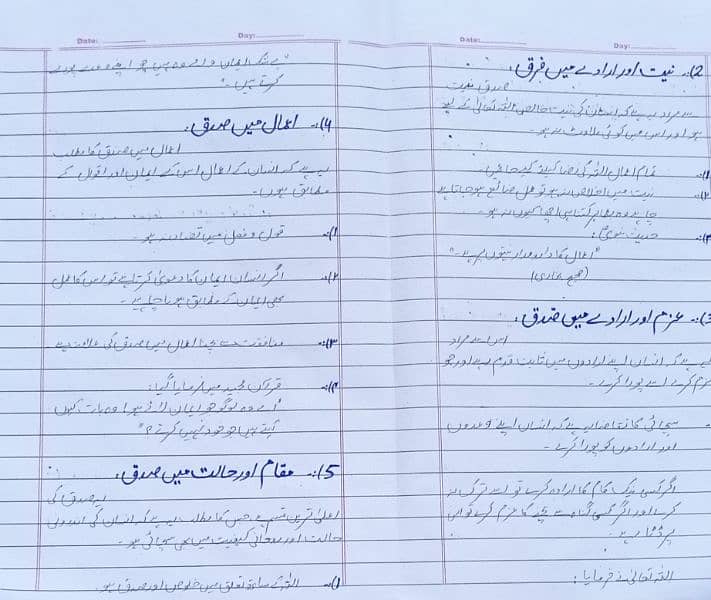 Date:
Day:
2)۔ نیت اور ارادے میں فرق:
صدق نیت
سے مراد یہ ہے کہ انسان کی نیت خالص اللہ تعالیٰ کے لیے
ہو اور اس میں کوئی ملاوٹ نہ ہو۔
تمام اعمال اللہ کی رضا کیلئے کیے جائیں۔
نیت میں اخلاص نہ ہو تو عمل ضائع ہو جاتا ہے
چاہے وہ بظاہر کتنا ہی اچھا کیوں نہ ہو۔
حدیث نبوی:
"اعمال کا دارومدار نیتوں پر ہے۔"
(صحیح بخاری)
3)۔ عزم اور ارادے میں صدق:
اس سے مراد
یہ ہے کہ انسان اپنے ارادوں میں ثابت قدم رہے اور جو
عزم کرے اسے پورا کرے۔
سچائی کا تقاضا یہ ہے کہ انسان اپنے وعدوں
اور ارادوں کو پورا کرے۔
اگر کسی نیک کام کا ارادہ کرے تو اسے ترک نہ
کرے اور اگر کسی گناہ سے بچنے کا عزم کرے تو اس
پر ڈٹا رہے۔
اللہ تعالیٰ نے فرمایا:
Date:
Day:
"بے شک ایمان والے وہ ہیں جو اپنے وعدے پورے
کرتے ہیں۔"
4)۔ اعمال میں صدق:
اعمال میں صدق کا مطلب
یہ ہے کہ انسان کے اعمال اس کے ایمان اور اقوال کے
مطابق ہوں۔
1)۔ قول و فعل میں تضاد نہ ہو۔
۲)۔ اگر انسان ایمان کا دعویٰ کرتا ہے تو اس کا عمل
بھی ایمان کے مطابق ہونا چاہیے۔
۳)۔ منافقت سے بچنا اعمال میں صدق کی علامت ہے
۴)۔ قرآن مجید میں فرمایا گیا:
"اے وہ لوگو جو ایمان لائے ہو! وہ بات کیوں
کہتے ہیں جو خود نہیں کرتے؟"
5)۔ مقام اور حالت میں صدق:
یہ صدق کی
اعلیٰ ترین قسم ہے جس کا مطلب یہ ہے کہ انسان کی اندرونی
حالت اور روحانی کیفیت میں بھی سچائی ہو۔
1)۔ اللہ کے ساتھ تعلق میں خلوص اور صدق ہو۔